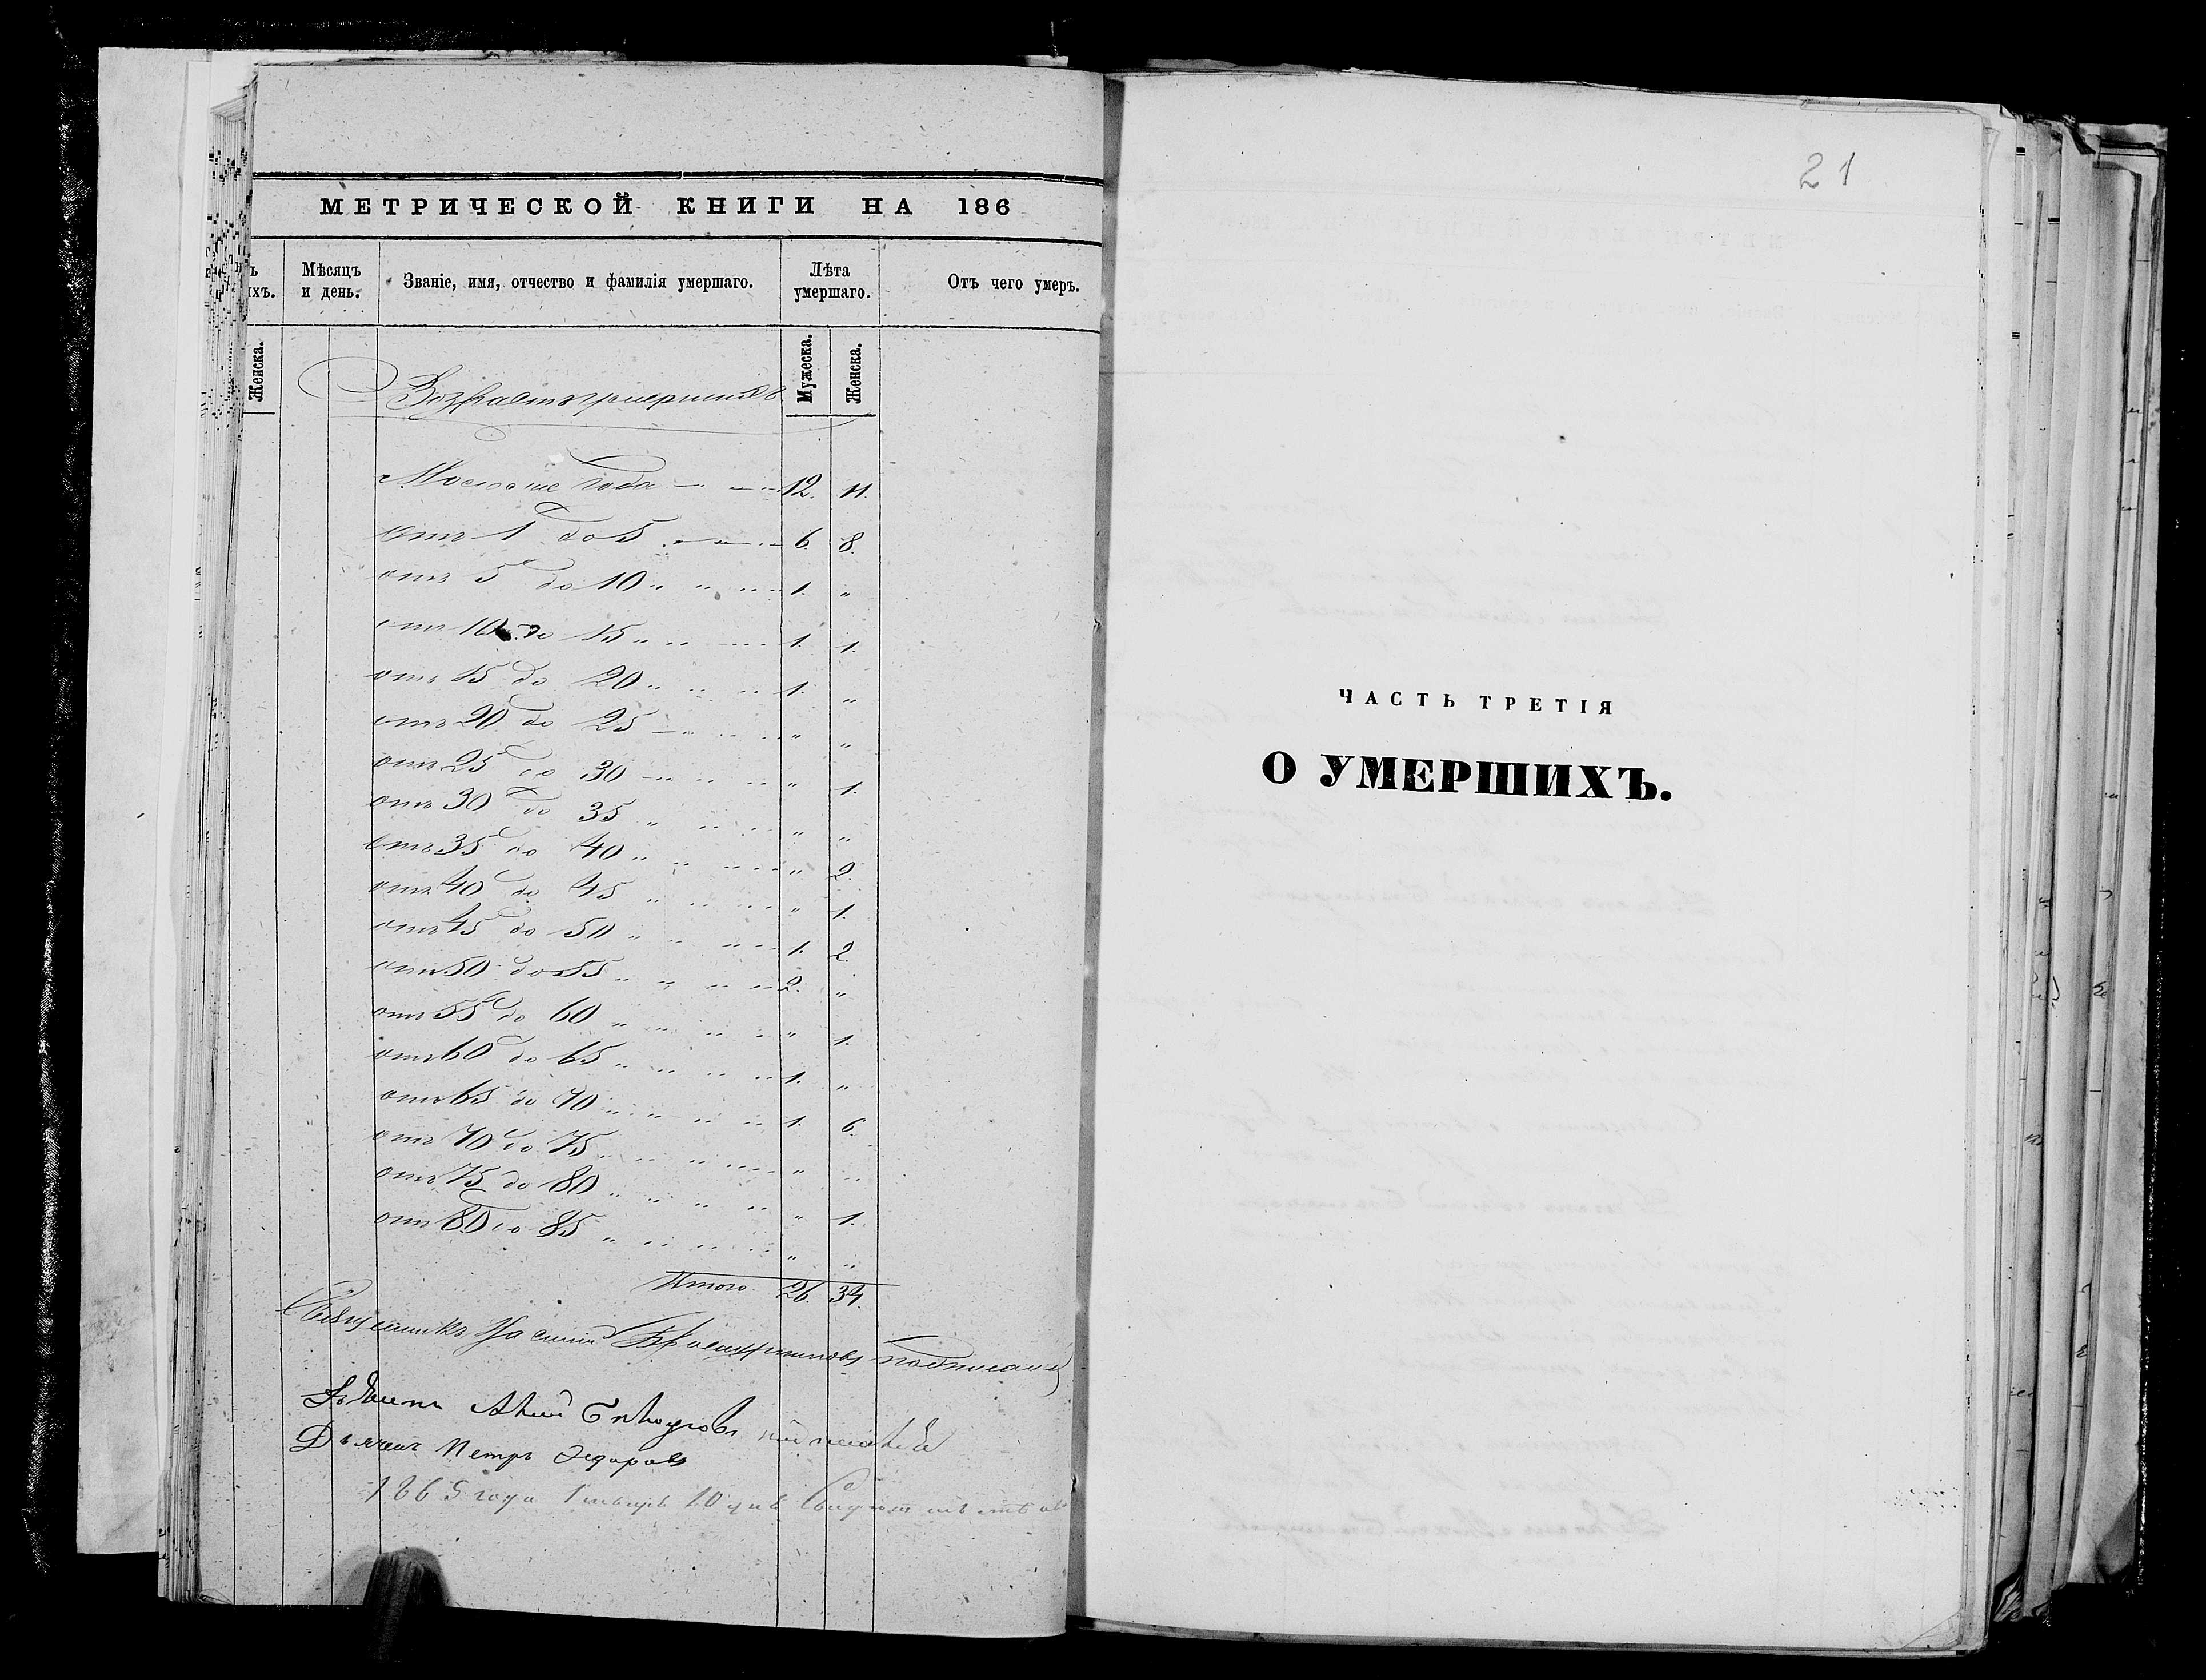 МЕТРИЧЕСКОЙ КНИГИ НА 186
ъ
ихъ.
Мѣсяцъ
и день.
Званіе, имя, отчество и фамилія умершаго.
Лѣта
умершаго.
Отъ чего умеръ.
Женска.
Мужеска.
Женска.
Возрастъ умершихъ
года 12. 11.
отъ 1 до 5 6. 8.
отъ 5 до 10 „ „ „ 1. „
отъ 10 до 15 „ „ „ 1. 1.
отъ 15 до 20 „ „ „ 1. „
отъ 20 до 25 „ „ „ „
отъ 25 до 30 „ „ „ „ 1.
отъ 30 до 35 „ „ „ „ „
отъ 35 до 40 „ „ „ „ 2.
отъ 40 до 45 „ „ „ „ 1.
отъ 45 до 50 „ „ „ 1. 2.
отъ 50 до 55 „ „ „ „ 2. „
отъ 55 до 60 „ „ „ „ „ 1.
отъ 60 до 65 „ „ „ „ 1. „
отъ 65 до 70 „ „ „ „ 1. 6.
отъ 70 до 75 „ „ „ „ „ „
отъ 75 до 80 „ „ „ „ „ 1.
отъ 80 до 85 „ „ „ „ „ „
Итого 26. 34.
Священникъ подписалъ
Дьячекъ Петръ Федоровъ
1865 года Январь 10 дня
21
ЧАСТЬ ТРЕТІЯ
О УМЕРШИХЪ.